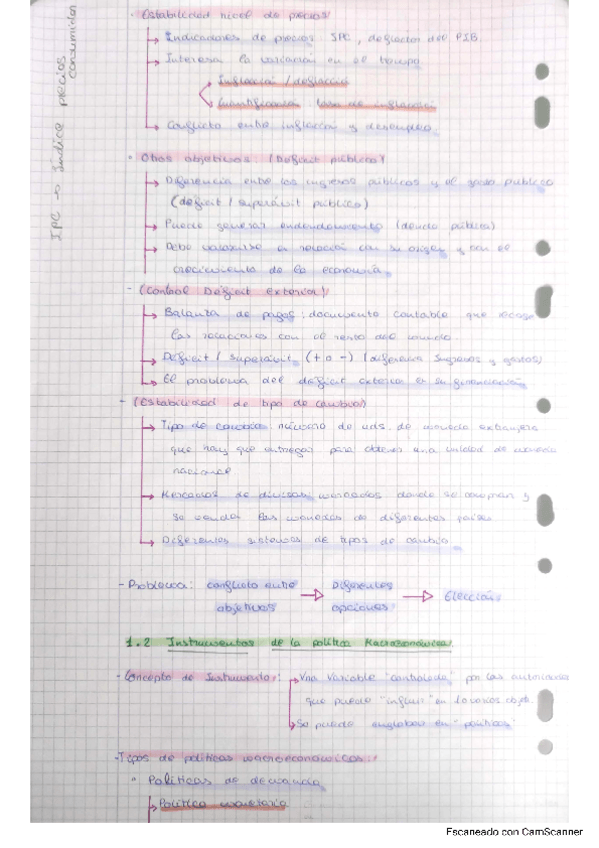 IPC → Índice precios
consumidor
· Estabilidad nivel de precios
→ Indicadores de precios IPC, deflactor del PIB
→ Interesa la variación en el tiempo
Inflación / deflación
Cuantificación tasa de inflación
→ Conflicto entre inflación y desempleo.
· Otros objetivos (Déficit público)
→ Diferencia entre los ingresos públicos y el gasto público
(déficit / superávit público)
→ Puede generar endeudamiento (deuda pública)
→ Debe valorarse en relación con su origen y con el
crecimiento de la economía
- (Control Déficit exterior)
→ Balanza de pagos: documento contable que recoge
las relaciones con el resto del mundo
→ Déficit / superávit (+ o -) (diferencia ingresos y gastos)
→ El problema del déficit exterior es su financiación
- (Estabilidad de tipo de cambio)
→ Tipo de cambio: número de uds. de moneda extranjera
que hay que entregar para obtener una unidad de moneda
nacional
→ Mercados de divisas: mercados donde se compran y
se venden las monedas de diferentes países
→ Diferentes sistemas de tipos de cambio.
- Problema: conflicto entre → Diferentes → Elección
objetivos opciones
1.2 Instrumentos de la política Macroeconómica.
- Concepto de Instrumento: Una variable "controlada" por las autoridades
que puede "influir" en
→ Se puede englobar en "políticas"
- Tipos de políticas macroeconómicas:
Políticas de demanda
→ Política monetaria
Escaneado con CamScanner